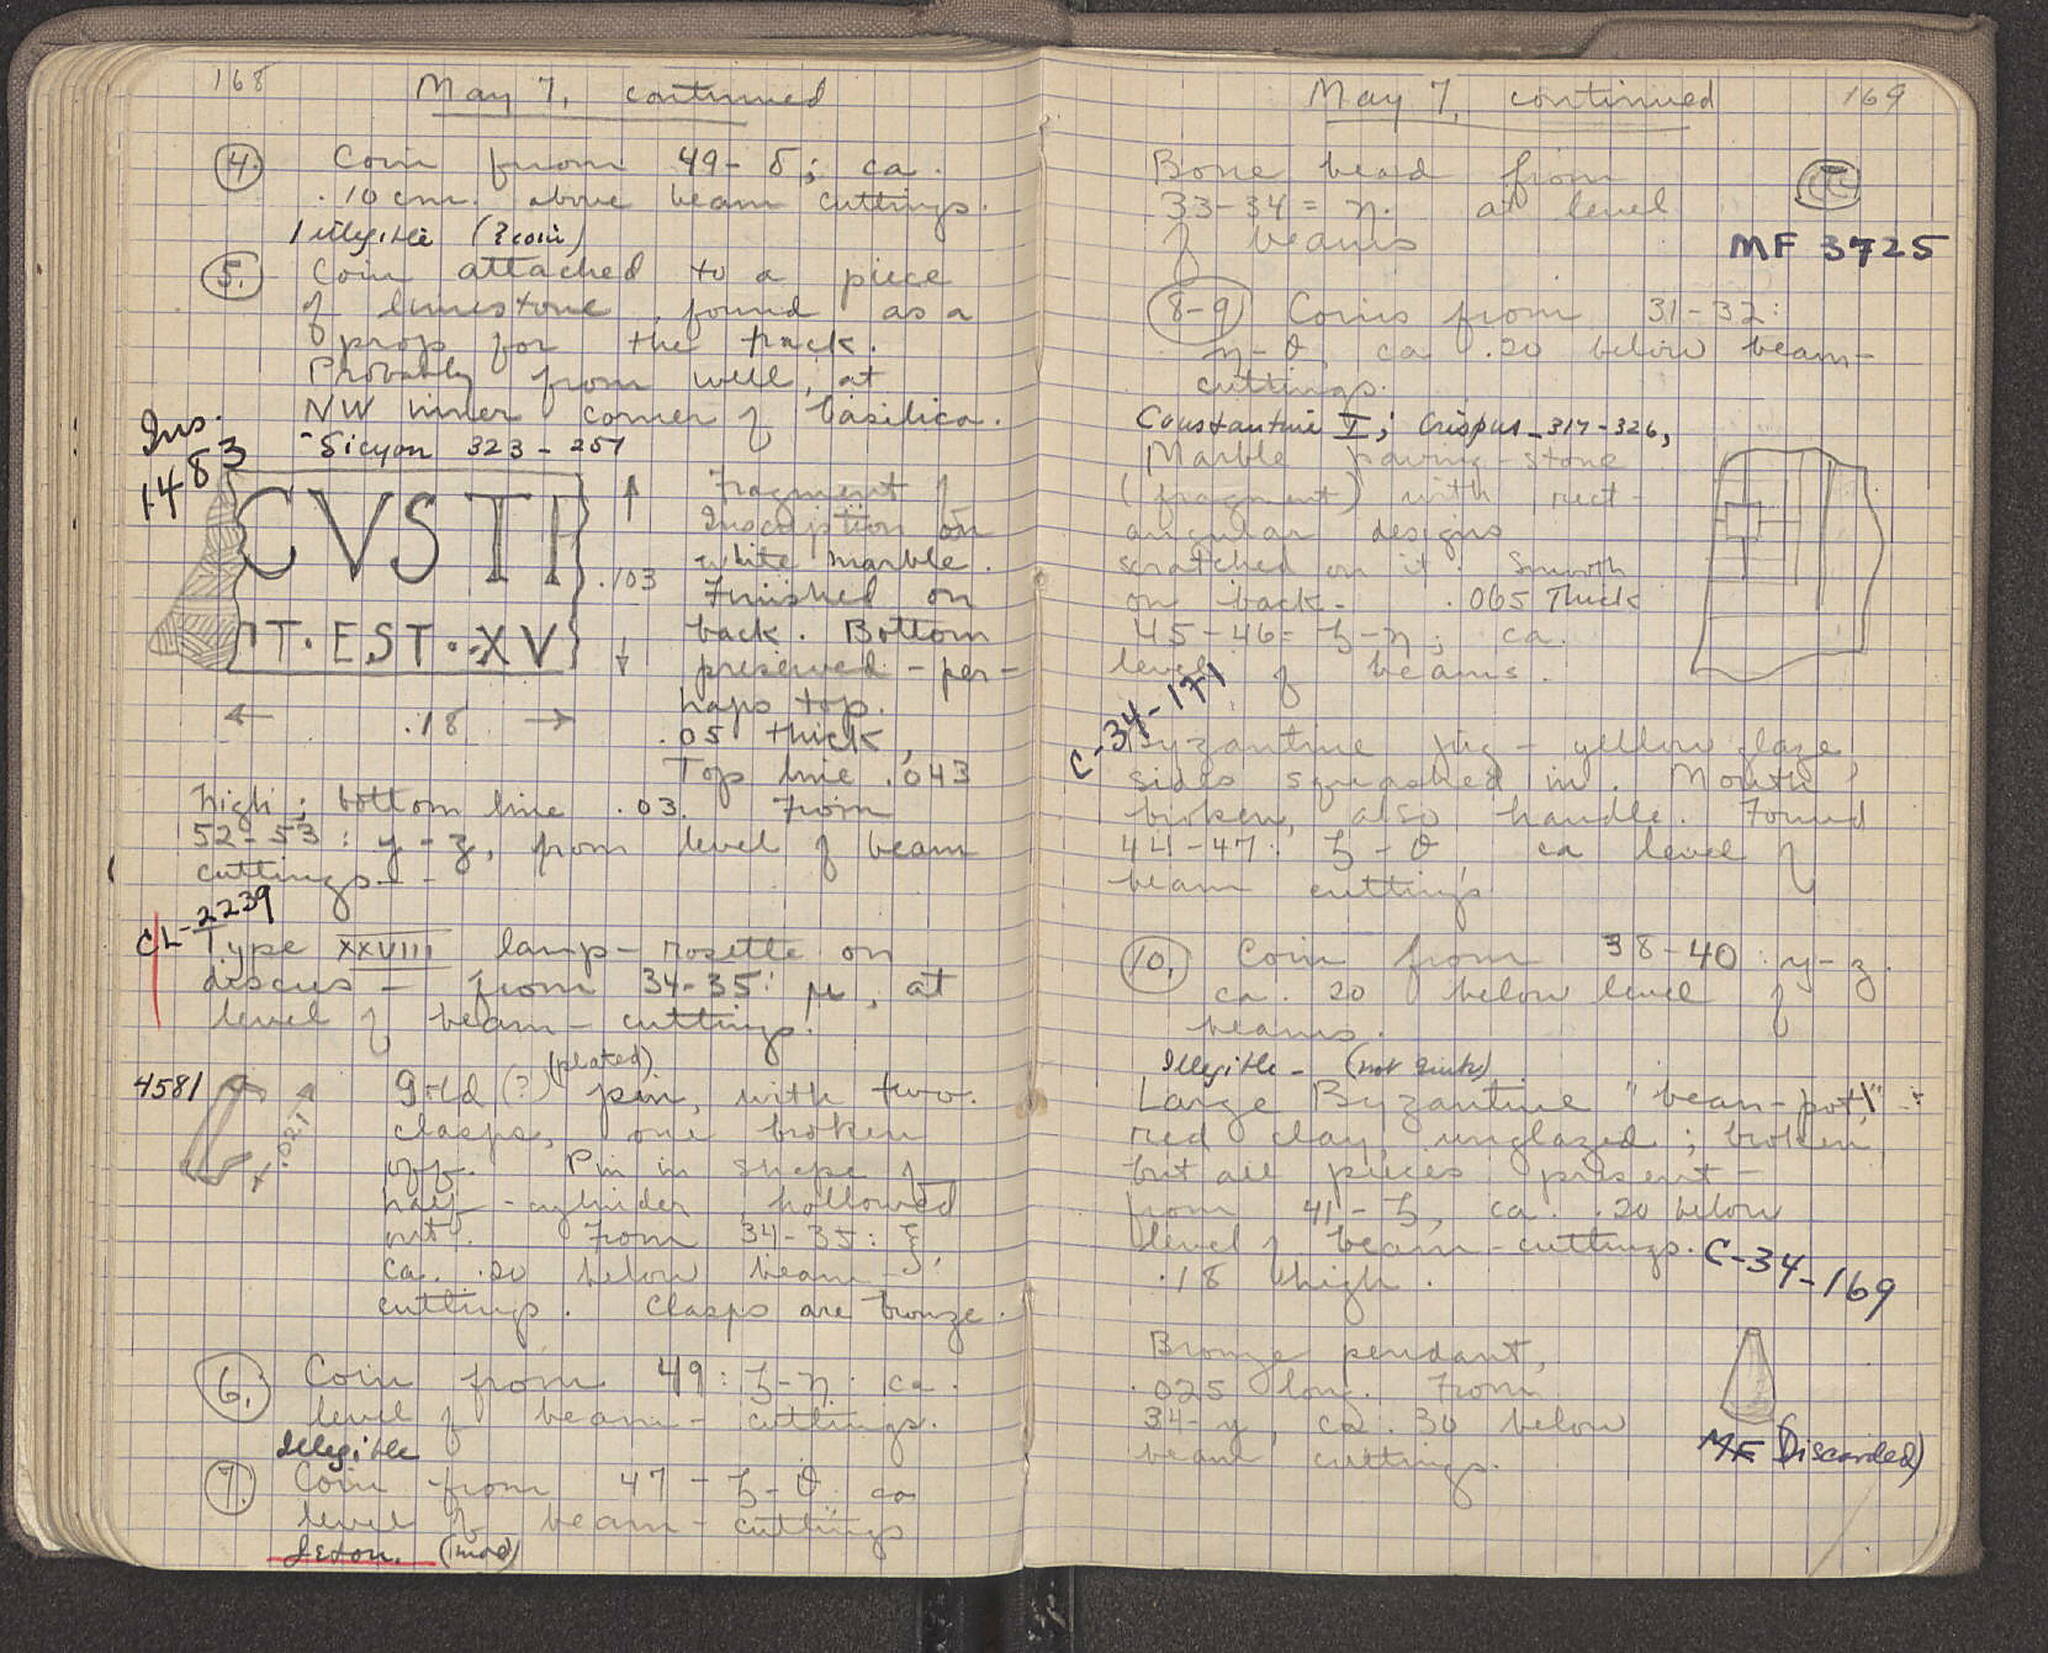 168
May 7, continued
4. Coin from 49-δ; ca.
.10 cm. above beam cuttings.
Illegible (? coin)
5. Coin attached to a piece
of limestone, found as a
prop for the track.
Probably from well, at
NW inner corner of basilica.
- Sicyon 323-251
Ins.
1483
CVSTI
T·EST·XV
.103
.18
Fragment of
Inscription on
white marble.
Finished on
back. Bottom
preserved - per-
haps top.
.05 thick,
Top line .043
high; bottom line .03. From
52-53: y-z, from level of beam
cuttings.
CL-2239
Type XXVIII lamp - rosette on
discus - from 34-35: μ, at
level of beam-cuttings.
4581
.021
(plated)
Gold (?) pin, with two
clasps, one broken
off. Pin in shape of
half-cylinder, hollowed
out. From 34-35: ξ,
ca. .20 below beam-
cuttings. Clasps are bronze.
6. Coin from 49: ζ-η. ca.
level of beam-cuttings.
Illegible
7. Coin from 47-ζ-θ. ca
level of beam-cuttings
Jeton. (mod)
May 7, continued
169
Bone bead from
33-34 = η. at level
of beams
MF 3725
8-9 Coins from 31-32:
η-θ, ca .20 below beam-
cuttings.
Constantine I; Crispus - 317-326,
Marble paving-stone
(fragment) with rect-
angular designs
scratched on it. Smooth
on back. .065 Thick
45-46 = ζ-η; ca.
level of beams.
C-34-171
Byzantine jug - yellow glaze,
sides squashed in. Mouth
broken, also handle. Found
44-47: ζ-θ, ca level of
beam cuttings
10. Coin from 38-40: y-z.
ca. 20 below level of
beams.
Illegible - (not Greek)
Large Byzantine "bean-pot" -
red clay, unglazed; broken,
but all pieces present -
from 41-ζ, ca. .20 below
level of beam-cuttings. C-34-169
.18 high.
Bronze pendant,
.025 long. From
34-y, ca .30 below
beam cuttings.
MF (Discarded)